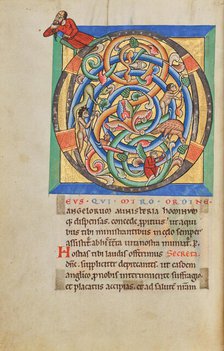 EUS·QUI·MIRO·ORDINE
ANGELORUM MINISTERIA HOMINUMq;
q; dispensas. concede ꝓpitius ut aqui
bus tibi ministrantibus in celo semper
assistit. ab his in terra uita nostra muniat. P.
Hostias tibi laudis offerimus Secreta.
dñe. suppliciter deprecantes. ut easdem
angelico ꝓ nobis interueniente suffragio
et placatus accipias. et ad salutem nram